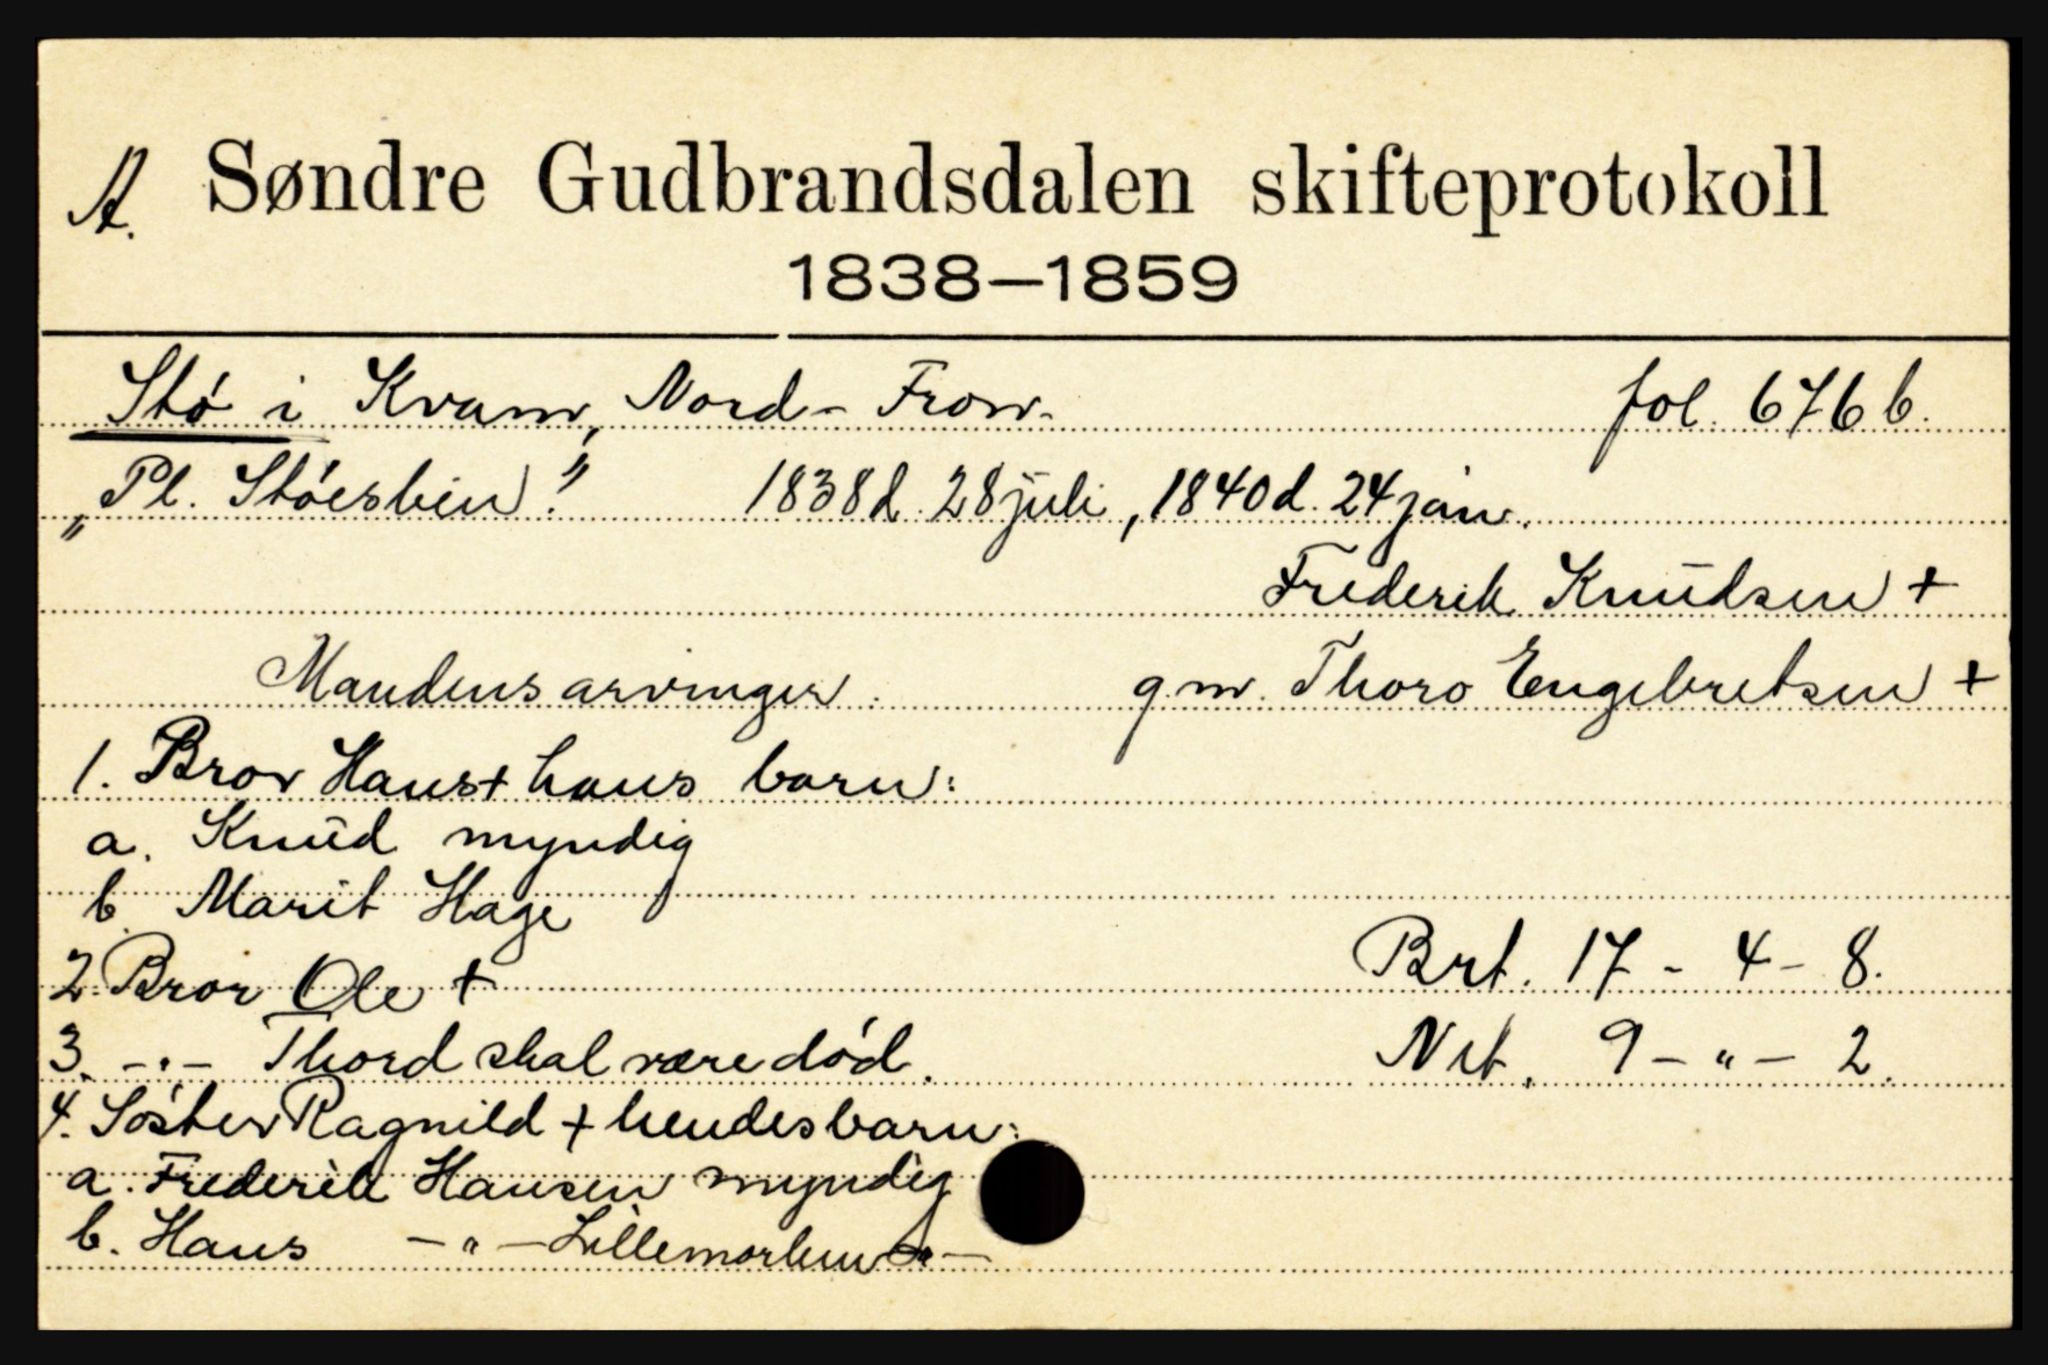 A. Søndre Gudbrandsdalen skifteprotokoll
1838—1859
Stó i Kvam, Nord-Fron. fol. 676 b.
„Pl. Stóesbin." 1838 d. 28 juli, 1840 d. 24 jan.
Frederik Knudsen +
Mandens arvinger. g.m. Thoro Engebretsen +
1. Bror Hans + hans barn:
a. Knud myndig
b. Marit Hage
2. Bror Ole + Brt. 17 - 4 - 8.
3. -"- Thord skal være död. Net. 9 - " - 2.
4. Söster Ragnild + hendes barn:
a. Frederik Hansen myndig
b. Hans -"- Lillemorken -"-